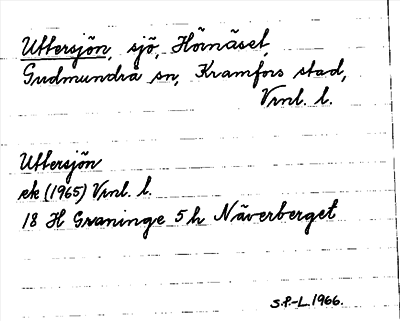 Uttersjön, sjö, Hörnäset,
Gudmundra sn, Kramfors stad,
Vrnl. l.
Uttersjön
ek (1965) Vrnl. l.
18 H Graninge 5 h Näverberget
S.P.-L. 1966.